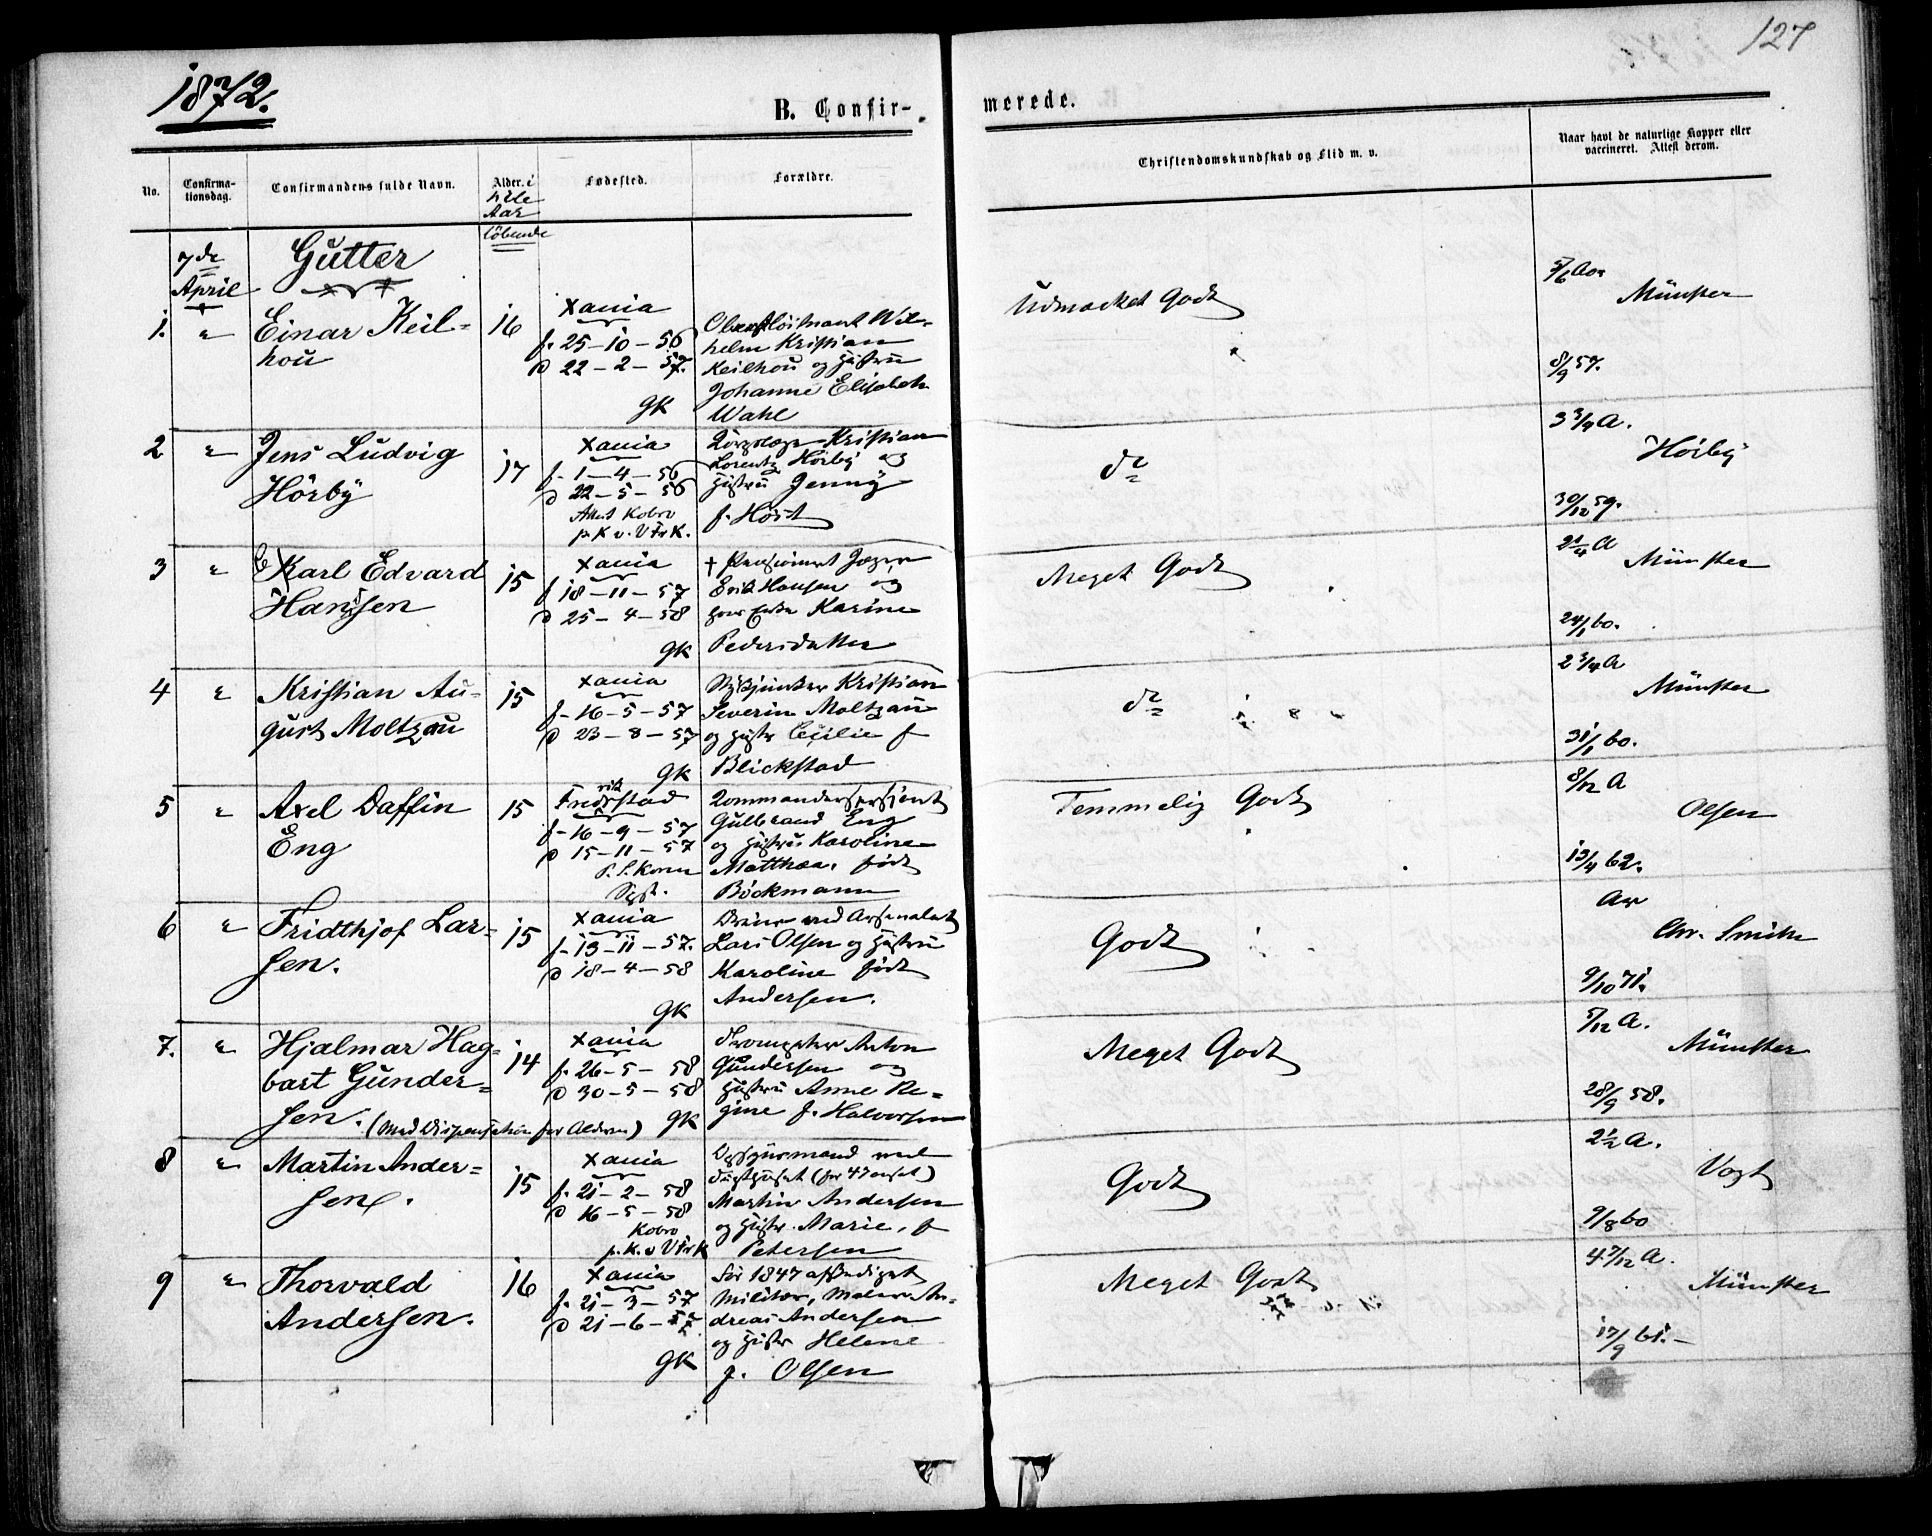 127
1872.
B. Confir-
merede.
No.
Confirma-
tionsdag.
Confirmandens fulde Navn.
Alder. i
hele
Aar
löbende
Fødested.
Forældre.
Christendomskundskab og Flid m. v.
Naar havt de naturlige Kopper eller
vaccineret. Attest derom.
7de
April
Gutter
1. " Einar Keil-
hou
16
Xania
f. 25-10-56
D 22-2-57.
GK
Oberstlöitnant Wil-
helm Kristian
Keilhou og Hustru
Johanne Elisabeth
Wahl
Udmærket Godt
5/6 Aar
Münster
8/9 57.
2 " Jens Ludvig
Hörby
17
Xania
f. 1-4-56
D 22-5-56
Attest Kobro
p. K v. VFrK.
Kristian
Lorentz Hörby og
Hustru Jenny
f. Höst
do
3 3/4 A.
Hörby
30/12 59.
3 " Karl Edvard
Hansen
15
Xania
f 18-11-57
D 25-4-58
GK
+ Pensioneret Jæger
Erik Hansen og
Karine
Pedersdatter
Meget Godt
2 1/4 A
Münster
24/1 60.
4 " Kristian Au-
gust Moltzau
15
Xania
f-16-5-57
D 23-8-57
GK
Kristian
Severin Moltzau
og Hustr Cecilie f
Blickstad
do
2 3/4 A
Münster
31/1 60.
5 " Axel Daffin
Eng
15
Fredrikstad
f-16-9-57
D 15-11-57
P. S. Koren
Sgpr.
Kommandersersjent
Gulbrand Eng
og Hustru Karoline
Matthea. födt
Böckmann
Temmelig Godt
8/12 A
Olsen
13/4 62.
6 " Fridthjof Lar-
sen.
15
Xania
f-13-11-57.
D 18-4-58
GK
ved Arsenalet
Lars Olsen og Hustru
Karoline födt
Andersen.
Godt
Aar
Chr. Smith
9/10 71.
7. " Hjalmar Hag-
bart Gunder-
sen. (Med Dispensation for Alderen)
14
Xania
f. 26-5-58
D 30-5-58
GK
Trompeter Anton
Gundersen og
Hustru Anne Re-
gine f. Halvorsen
Meget Godt
5/12 A.
Münster
28/9 58.
8 " Martin Ander-
sen.
15
Xania
f. 21-2-58
D 16-5-58
Kobro
p. K. v VFrK
Opsynsmand ved
Martin Andersen
og Hustr. Marie, f
Petersen
Godt
2 1/2 A.
Vogt
9/8 60
9 " Thorvald
Andersen.
16
Xania
f. 21-3-57
D 21-6-57
GK
För 1847 afskediget
Militær, Maler An-
dreas Andersen
og Hustr Helene
f. Olsen
Meget Godt
4 7/12 A.
Münster
17/9 61.-